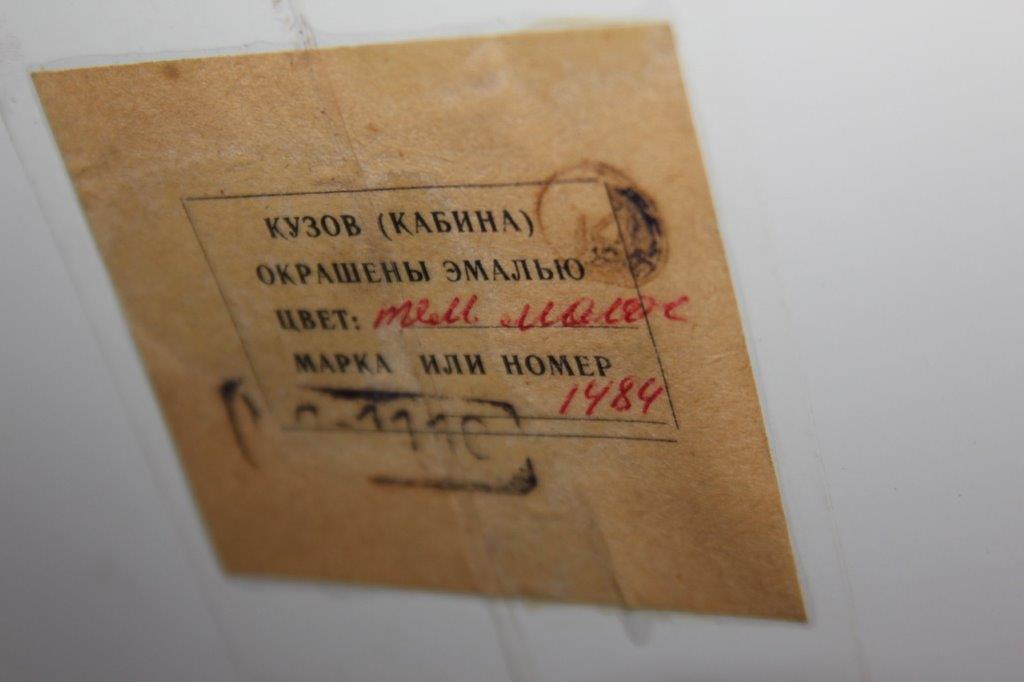 КУЗОВ (КАБИНА)
ОКРАШЕНЫ ЭМАЛЬЮ
ЦВЕТ: тем. молоч
МАРКА ИЛИ НОМЕР
1484